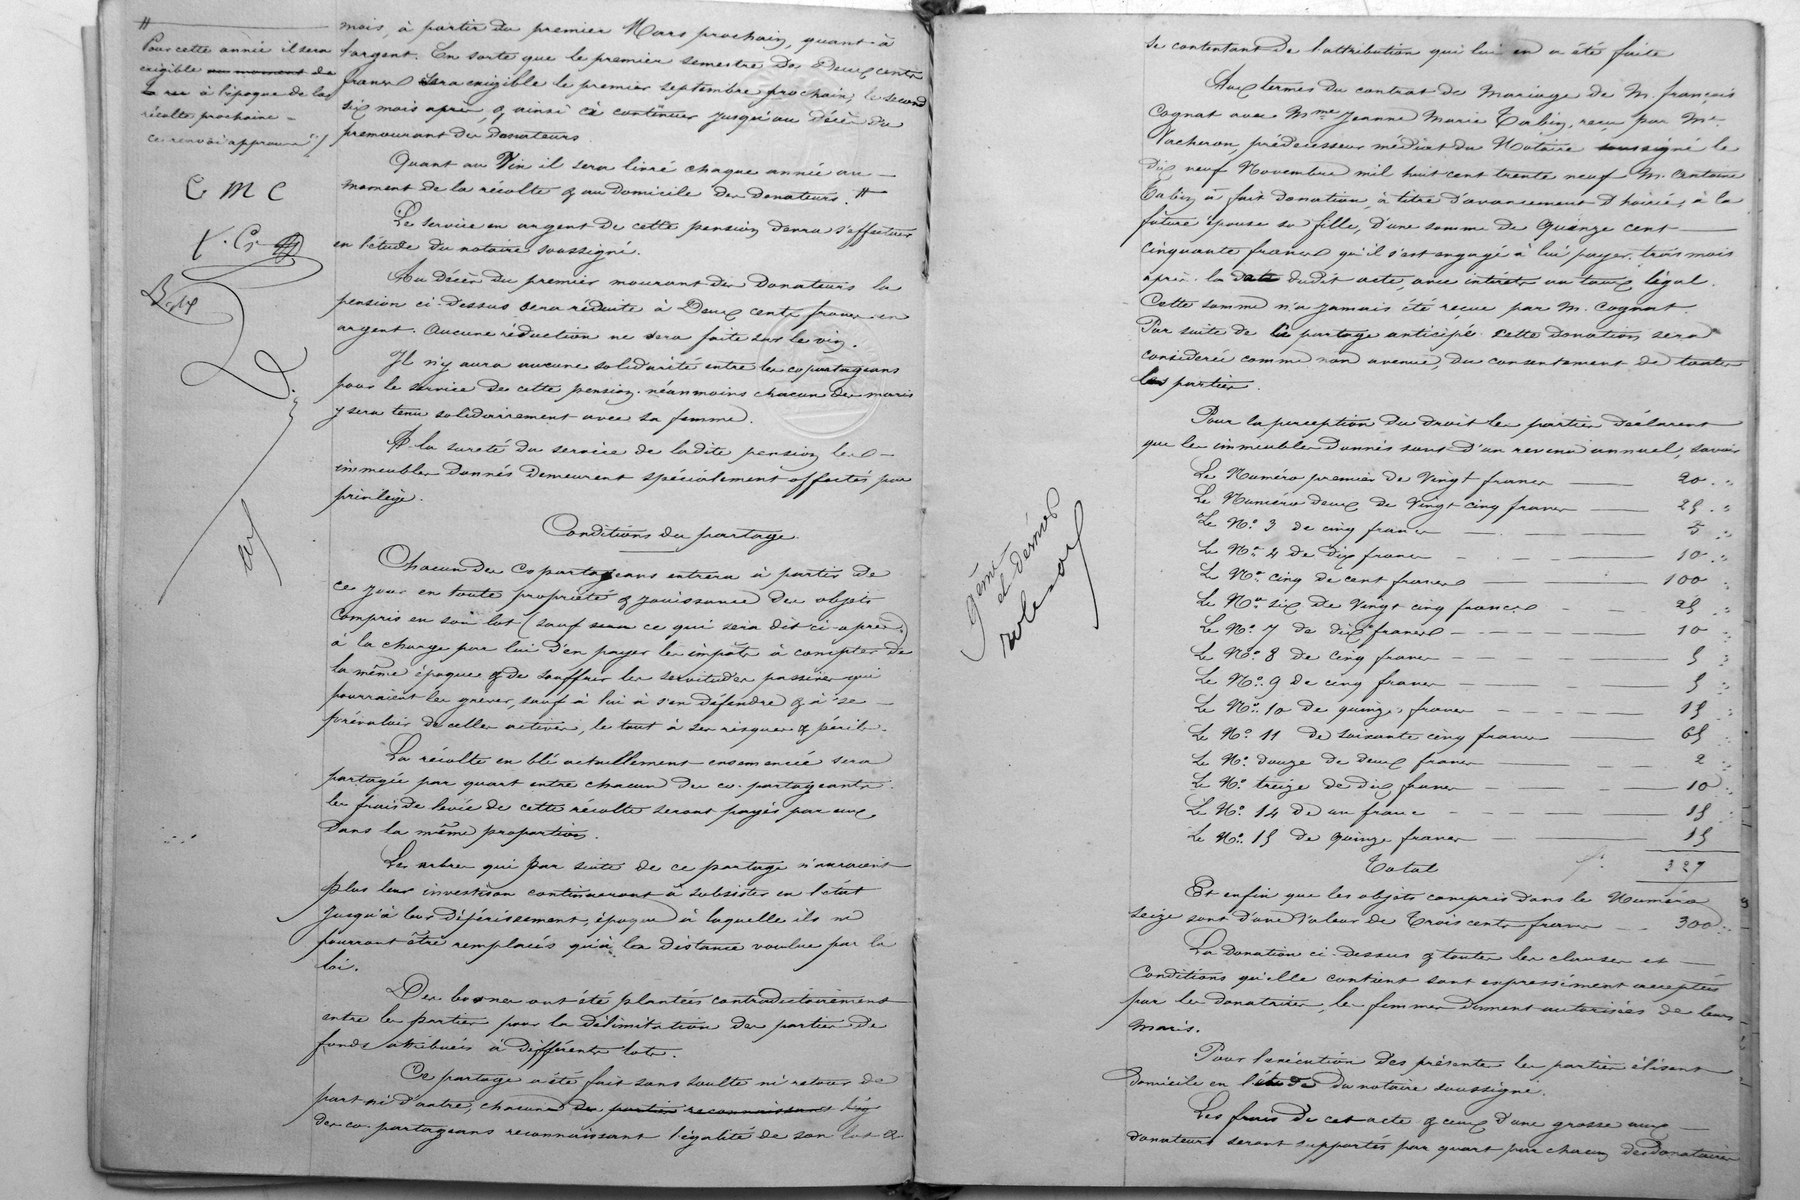 #
Pour cette année il sera
exigible au moment de
la rec à l'époque de la
récolte prochaine –
ce renvoi approuvé ./
C M C
mois, à partir du premier Mars prochain, quant à
l'argent. En sorte que le premier semestre de Deux cents
francs sera exigible le premier septembre prochain, le second
six mois après, & ainsi à continuer jusqu'au décès du
premourant des donateurs.
Quant au Vin il sera livré chaque année au –
moment de la récolte & au Domicile des Donateurs. #
Le service en argent de cette pension devra s'effectuer
en l'étude du notaire soussigné.
Au Décès du premier mourant des Donateurs la
pension ci-dessus sera réduite à Deux cents francs en
argent. Aucune réduction ne sera faite sur le vin.
Il n'y aura aucune solidarité entre les copartageans
pour le service de cette pension. néanmoins chacun des maris
y sera tenu solidairement avec sa femme.
A la sureté du service de ladite pension les –
immeubles Donnés Demeurent spécialement affectés par
privilège.
Conditions du partage.
Chacun des Copartageans entrera à partir de
ce jour en toute propriété & jouissance des objets
compris en son lot (sauf ce qui sera dit ci-après)
à la charge par lui d'en payer les impôts à compter de
la même époque & de souffrir les servitudes passives qui
pourraient les grever, sauf à lui à s'en défendre & à se –
prévaloir de celles actives, le tout à ses risques & périls.
La récolte en blé actuellement ensemencée sera
partagée par quart entre chacun des co-partageants.
les frais de levée de cette récolte seront payés par eux
dans la même proportion.
Les arbres qui par suite de ce partage n'auraient
plus leur investison continueront à subsister en l'état
jusqu'à leur dépérissement, époque à laquelle ils ne
pourront être remplacés qu'à la distance voulue par la
loi.
Des bornes ont été plantées contradictoirement
entre les parties pour la délimitation des parties de
fonds attribuées à différents lots.
Ce partage a été fait sans soulte ni retour de
part ni d'autre, chacun des parties reconnaissant
des co-partageans reconnaissant l'égalité de son lot &
9ème
et dernier
rôle
se contentant de l'attribution qui lui en a été faite
Aux termes du contrat de Mariage de M. françois
Cognat avec Mme Jeanne Marie Tabin, reçu par Me
Vacheron, prédécesseur médiat du Notaire soussigné le
Dix neuf Novembre mil huit cent trente neuf M. Antoine
Tabin a fait donation, à titre d'avancement d'hoirie, à la
future épouse sa fille, d'une somme de Quinze cent
cinquante francs qu'il s'est engagé à lui payer trois mois
après la date dudit acte, avec intérêts au taux légal.
Cette somme n'a jamais été reçue par M. Cognat.
Par suite de ce partage anticipé cette donation sera
considérée comme non avenue, du consentement de toutes
les parties.
Pour la perception du droit les parties déclarent
que les immeubles donnés sont d'un revenu annuel, savoir
Le Numéro premier de Vingt francs — 20 . "
Le Numéro deux de Vingt cinq francs — 25 . "
Le No. 3 de cinq francs — 5 "
Le No. 4 de dix francs — 10 "
Le No. cinq de cent francs — 100 "
Le No. six de Vingt cinq francs — 25 "
Le No. 7 de dix francs — 10 "
Le No. 8 de cinq francs — 5 "
Le No. 9 de cinq francs — 5 "
Le No. 10 de quinze francs — 15 "
Le No. 11 de soixante cinq francs — 65 "
Le No. douze de deux francs — 2 "
Le No. treize de dix francs — 10 "
Le No. 14 de un franc — 15 "
Le No. 15 de quinze francs — 15
Total 327
Et enfin que les objets compris dans le Numéro
seize sont d'une Valeur de Trois cents francs — 300 "
La Donation ci-dessus & toutes les clauses et –
Conditions qu'elle contient sont expressément acceptées
par les donataires, les femmes dûment autorisées de leurs
maris.
Pour l'exécution des présentes les parties élisent
domicile en l'étude du notaire soussigné.
Les frais de cet acte & ceux d'une grosse aux –
donateurs seront supportés par quart par chacun des donataires